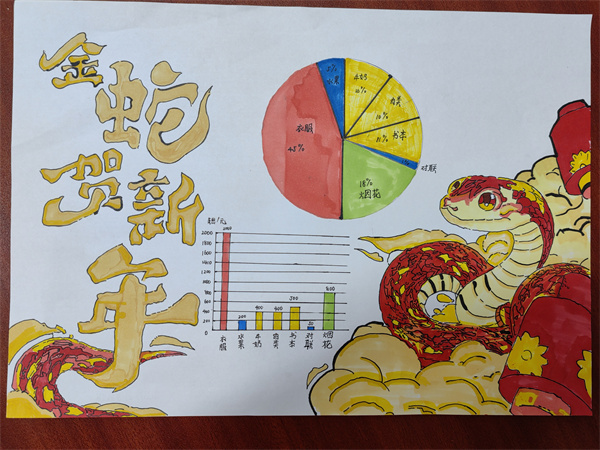 金蛇
贺新
年
衣服
45%
牛奶
肉类
书本
11%
对联
18%
烟花
2000
1800
1600
1400
1200
1000
800
600
400
200
0
200
400
400
500
800
衣服
水果
牛奶
肉类
书本
对联
烟花